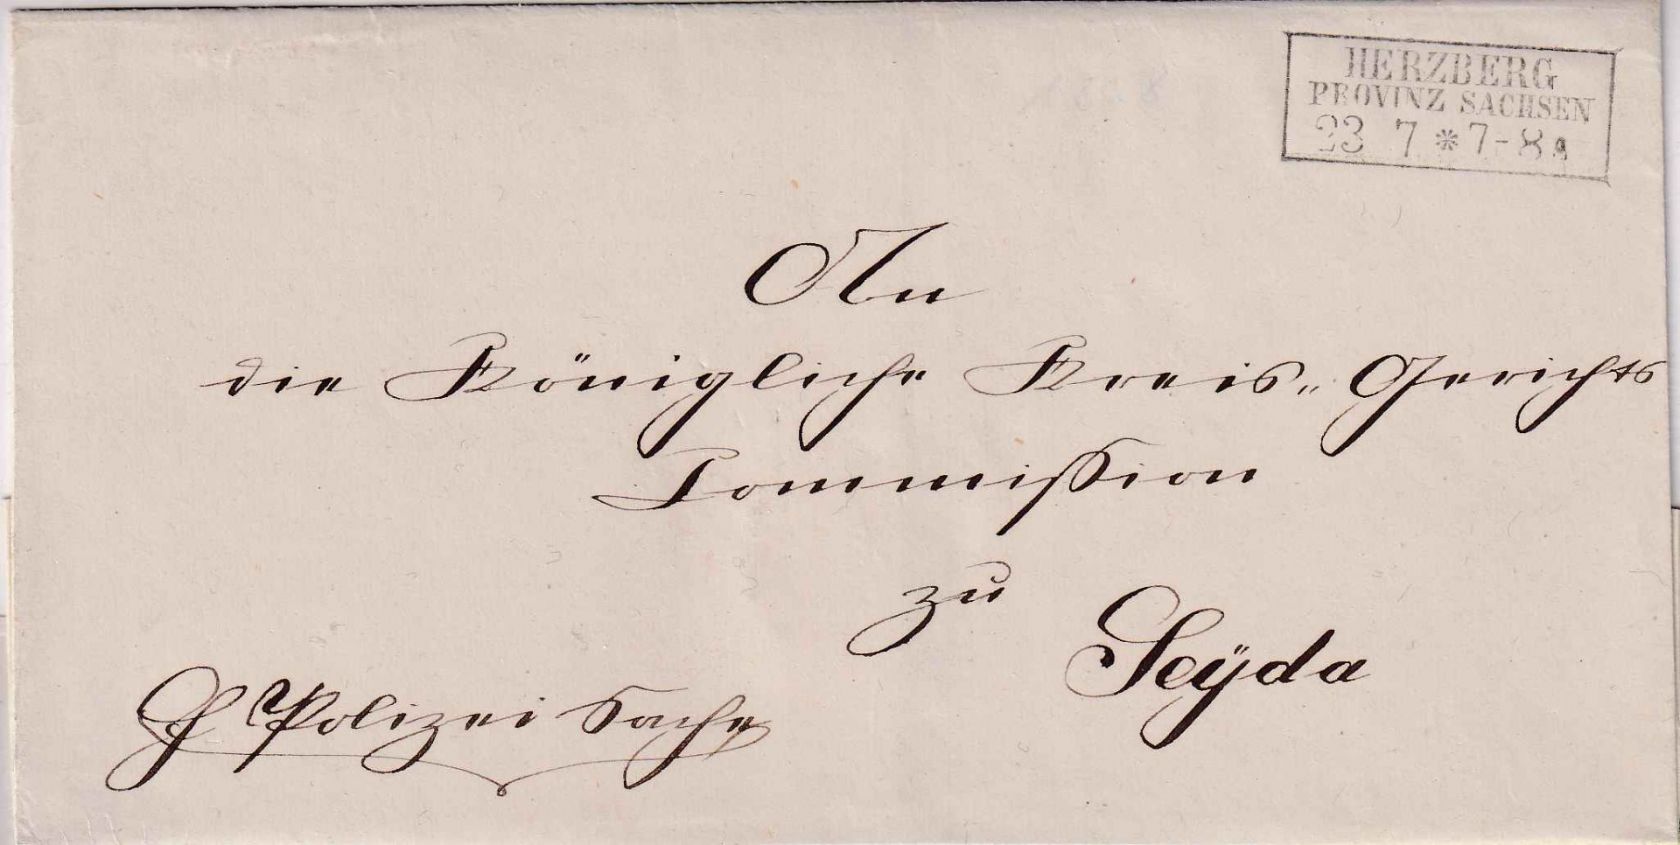 HERZBERG
PROVINZ SACHSEN
23 7 * 7-8
An
die Königliche Kreis-Gerichts
Commission
zu
Seÿda
Polizei Sache